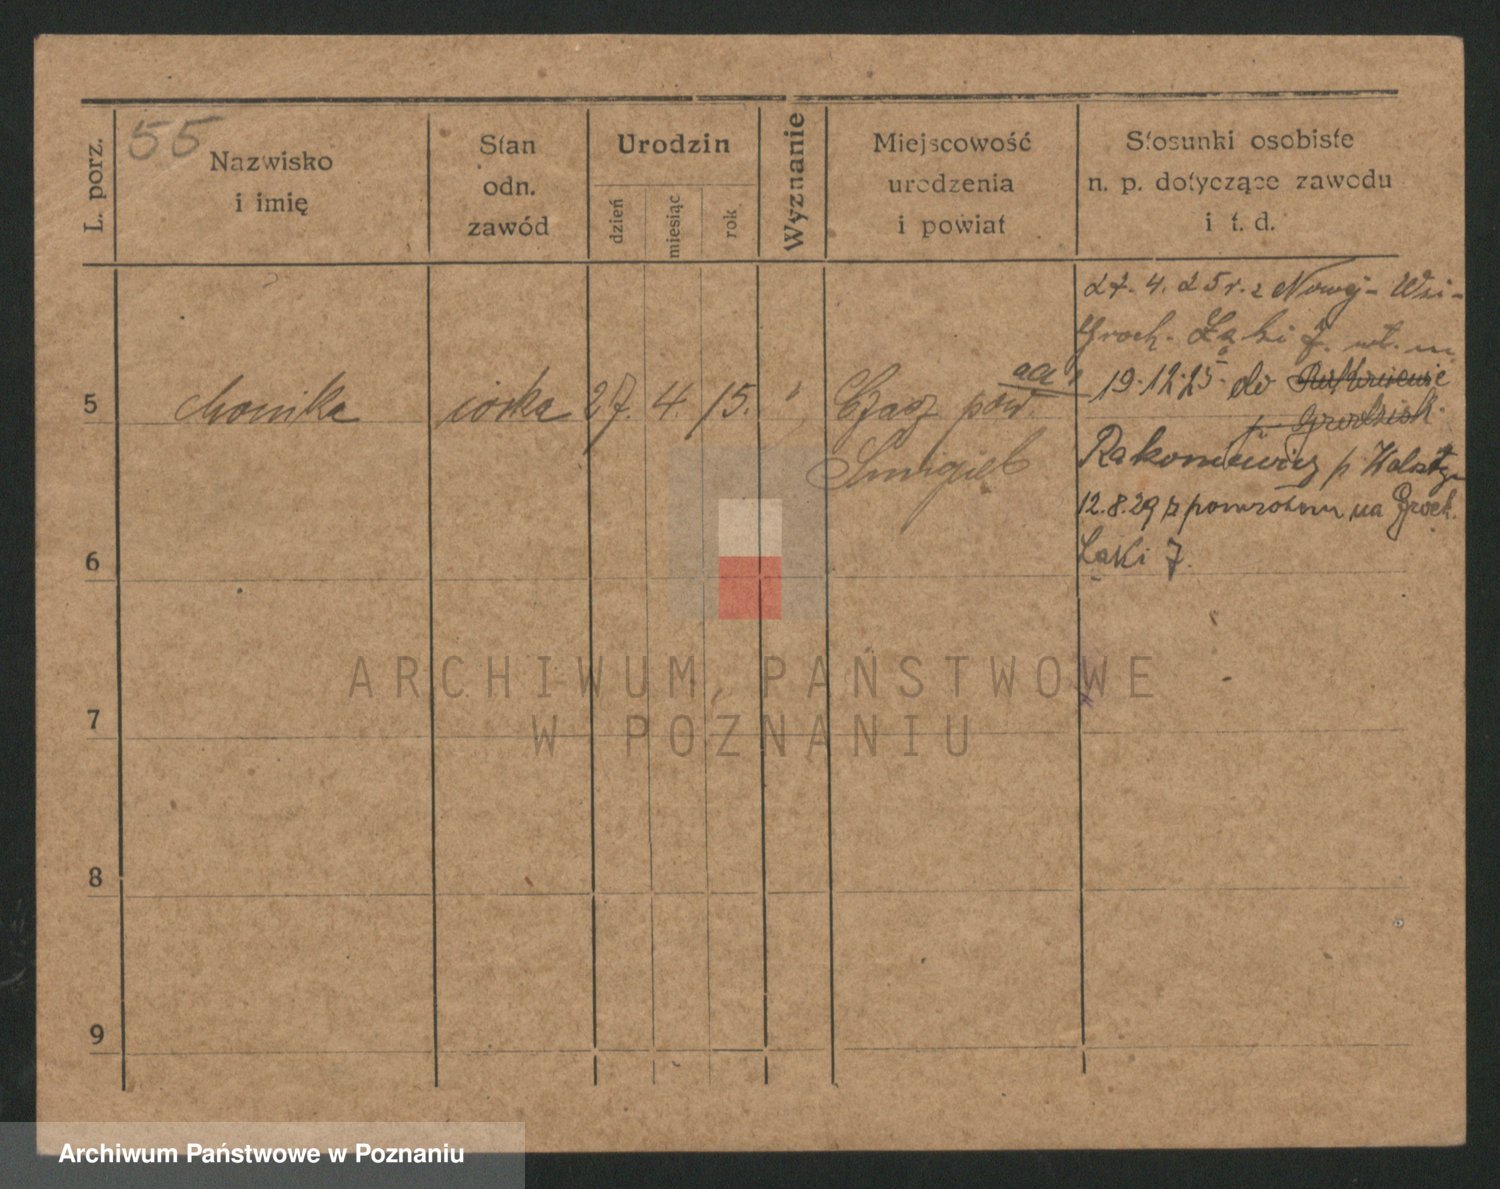 55
L. porz.
Nazwisko
i imię
Stan
odn.
zawód
Urodzin
dzień
miesiąc
rok
Wyznanie
Miejscowość
urodzenia
i powiat
Stosunki osobiste
n. p. dotyczące zawodu
i t. d.
5
Monika
córka
27. 4. 15.
Czacz pow.
Śmigiel
27. 4. 25 r. z Nowej-Wsi-
Groch. Łąki 7.
ad 1 19.12.25. do
p. Grodzisk.
Rakoniewicz p. Wolszt
12.8.29 z powrotem na Groch.
Łąki 7.
6
7
8
9
ARCHIWUM PAŃSTWOWE
W POZNANIU
Archiwum Państwowe w Poznaniu